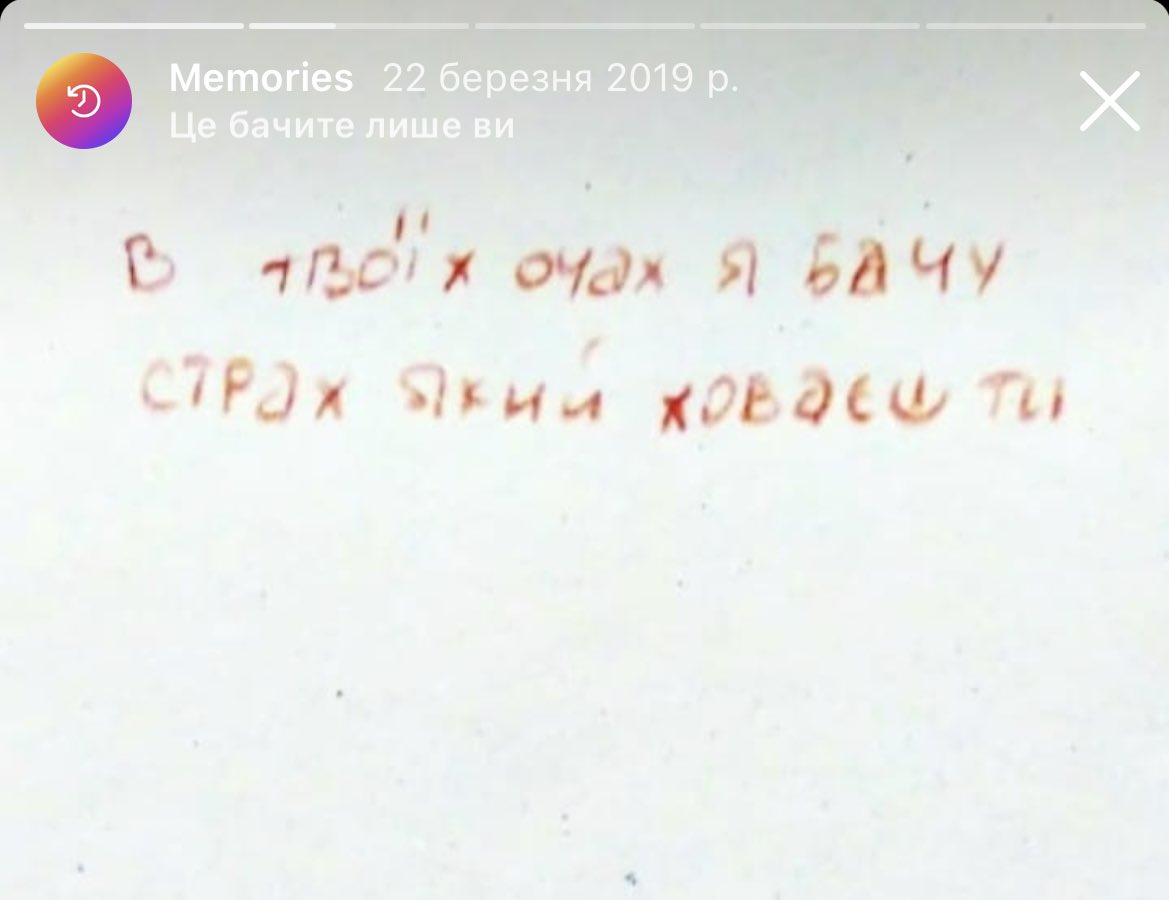 Memories 22 березня 2019 р.
Це бачите лише ви
В твоїх очах я бачу
страх який ховаєш ти